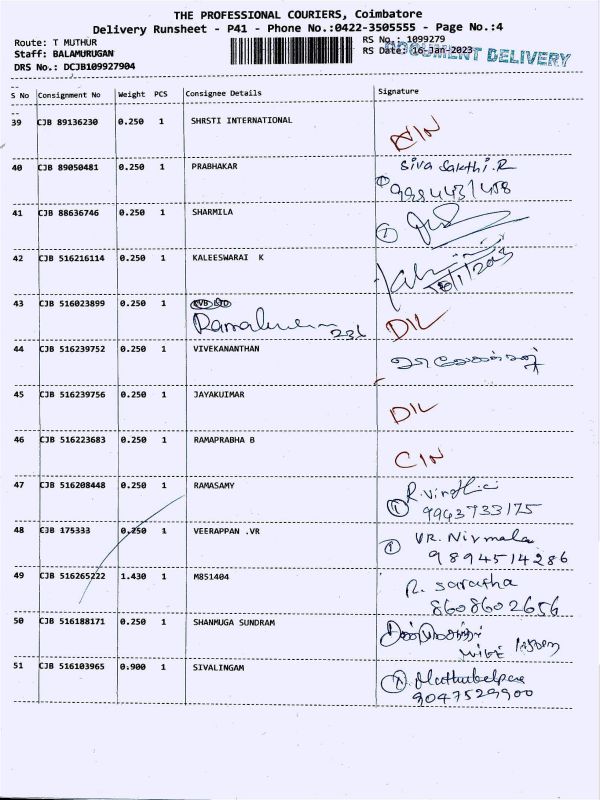 THE PROFESSIONAL COURIERS, Coimbatore
Delivery Runsheet - P41 - Phone No.:0422-3505555 - Page No.:4
Route: T MUTHUR
RS No.: 1099279
Staff: BALAMURUGAN
RS Date: 16-Jan-2023
DOCUMENT DELIVERY
DRS No.: DCJB109927904
S No Consignment No Weight PCS Consignee Details Signature
39 CJB 89136230 0.250 1 SHRSTI INTERNATIONAL
40 CJB 89050481 0.250 1 PRABHAKAR Siva Sakthi.R
41 CJB 88636746 0.250 1 SHARMILA
42 CJB 516216114 0.250 1 KALEESWARAI K
43 CJB 516023899 0.250 1 DIL
44 CJB 516239752 0.250 1 VIVEKANANTHAN
45 CJB 516239756 0.250 1 JAYAKUIMAR DIL
46 CJB 516223683 0.250 1 RAMAPRABHA B CIN
47 CJB 516208448 0.250 1 RAMASAMY
9943733175
48 CJB 175333 0.250 1 VEERAPPAN .VR VR. Nirmala
9894514286
49 CJB 516265222 1.430 1 M851404 R. saratha
8608602656
50 CJB 516188171 0.250 1 SHANMUGA SUNDRAM
51 CJB 516103965 0.900 1 SIVALINGAM
9047529900